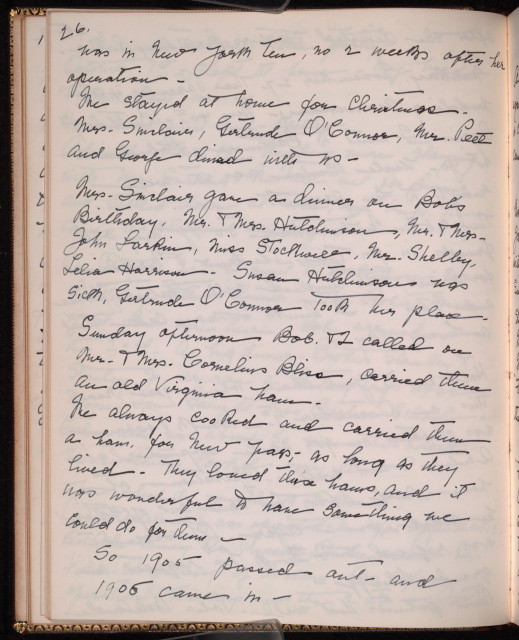 26.
was in New York ten, no 2 weeks after her
operation -
We stayed at home for Christmas.
Mrs. Sinclair, Gertrude O'Connor, Mr. Peet
and George dined with us -
Mrs. Sinclair gave a dinner on Bob's
Birthday, Mr. & Mrs. Hutchinson, Mr. & Mrs.
John Larkin, Miss Stockwell, Mr. Shelby,
Lelia Harrison. Susan Hutchinson was
sick, Gertrude O'Connor Took her place.
Sunday afternoon Bob. & I called on
Mr. & Mrs. Cornelius Bliss, carried them
an old Virginia ham.
We always cooked and carried them
a ham, for New Years,- as long as they
lived. They loved these hams, and it
was wonderful to have something we
could do for them -
So 1905 passed out - and
1906 came in -